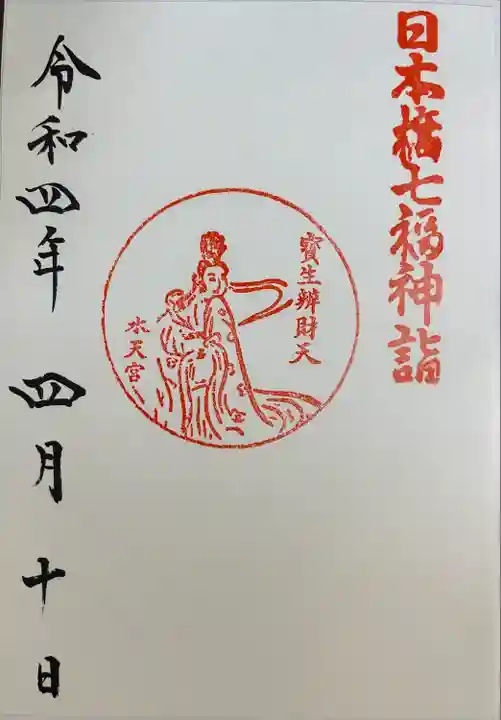 日本橋七福神詣
寳生辨財天
水天宮
令和四年 四月十日